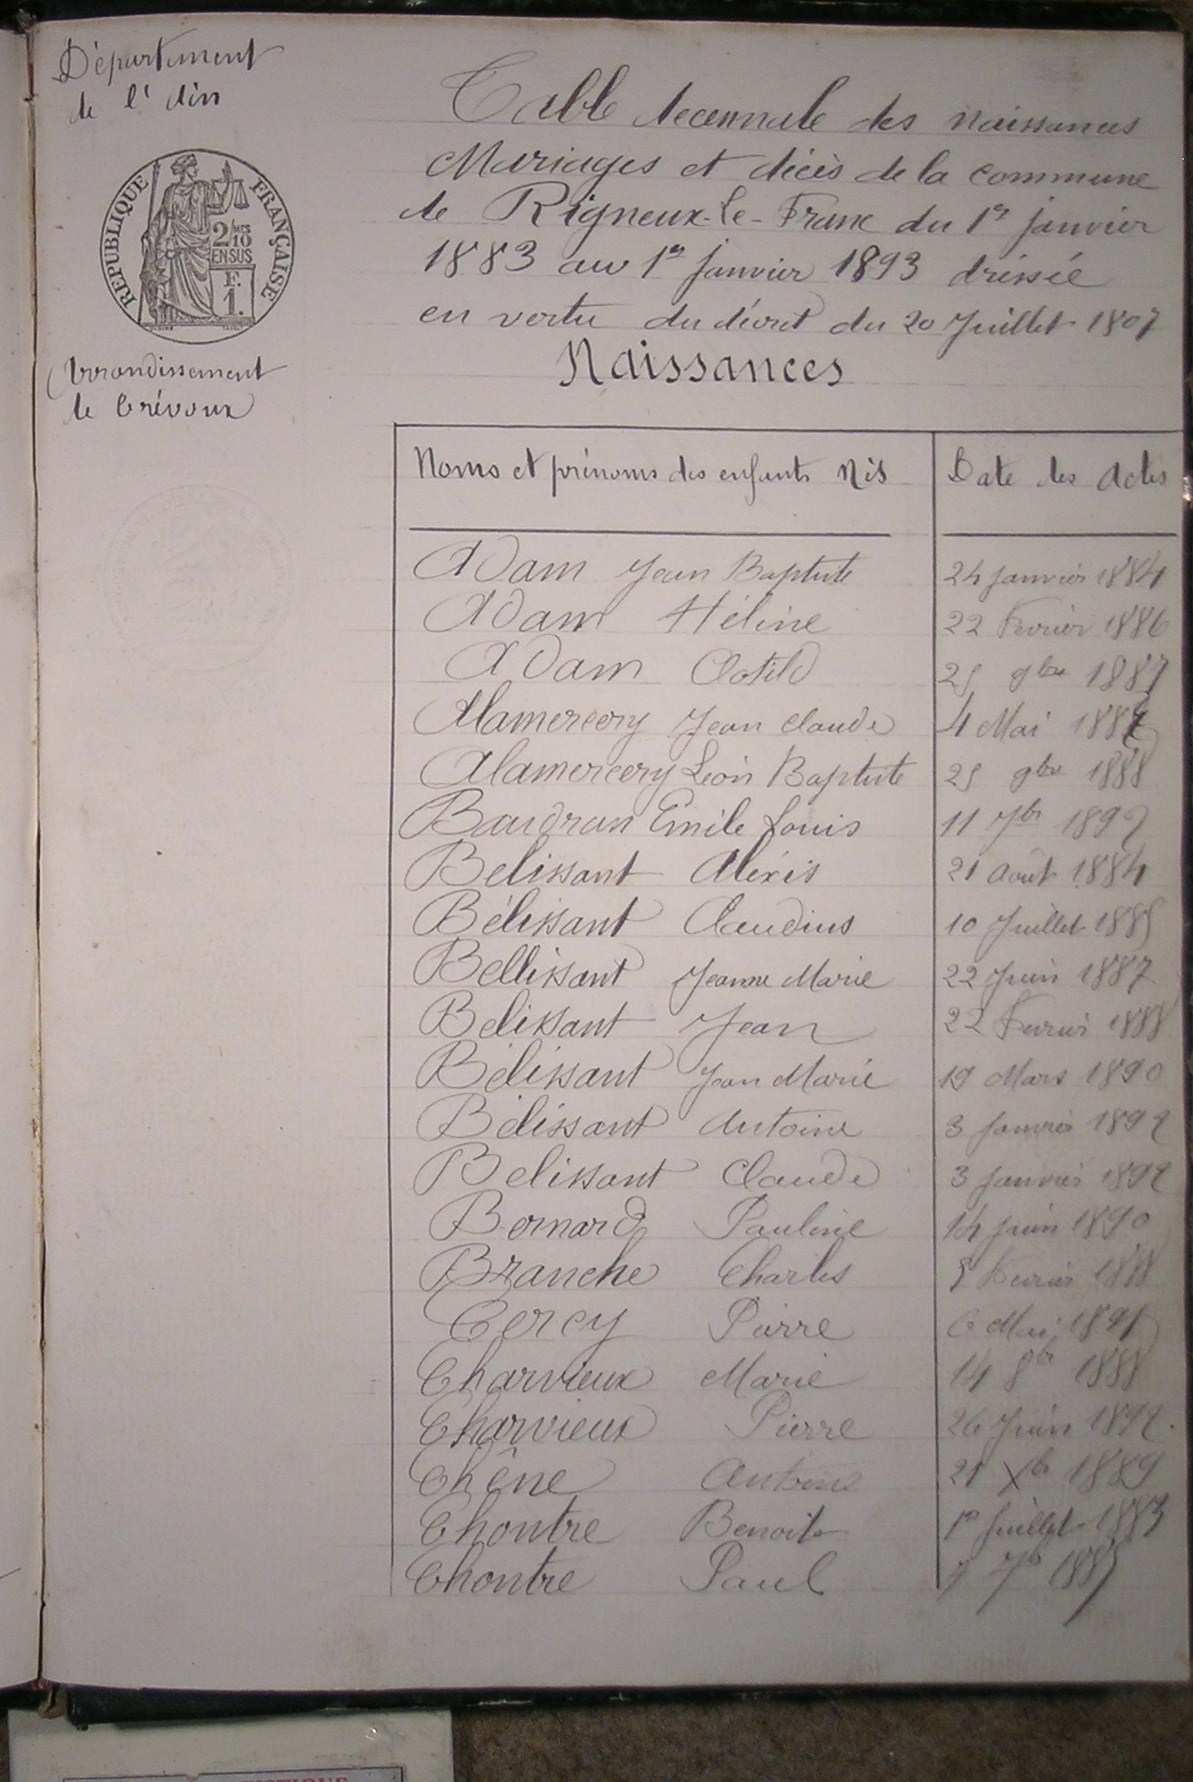 Département
de l'Ain
RÉPUBLIQUE FRANÇAISE
2/10
EN SUS
F.
1.
Arrondissement
de Trévoux
Table decennale des naissances
Mariages et décès de la Commune
de Rigneux-le-Franc du 1er janvier
1883 au 1er janvier 1893 dréssée
en vertu du décret du 20 Juillet 1807
Naissances
Noms et prénoms des enfants Nés Date des Actes
Adam Jean Baptiste 24 janvier 1884
Adam Hélène 22 Fevrier 1886
Adam Clotild 25 9bre 1887
Alamercery Jean Claude 4 Mai
Alamercery Léon Baptiste 25 9bre 1888
Baudran Emile Louis 11 7br 1892
Belissant Aléxis 21 Août 1884
Bélissant Claudius 10 Juillet 1885
Bellissant Jeanne Marie 22 Juin 1887
Bélissant Jean 22 Fevrier 1888
Bélissant Jean Marie 19 Mars 1890
Bélissant Antoine 3 Janvier 1892
Belissant Claude 3 janvier 1892
Bernard Pauline 14 juin 1890
Branche Charles 5 Fevrier 1888
Cercy Pierre 6 Mai 1891
Charvieux Marie 14 8br 1888
Charvieux Pierre 26 Juin 1892
Chêne Antoine 21 Xbr 1889
Chontre Benoit 1er Juillet 1883
Chontre Paul 7 7br 1885